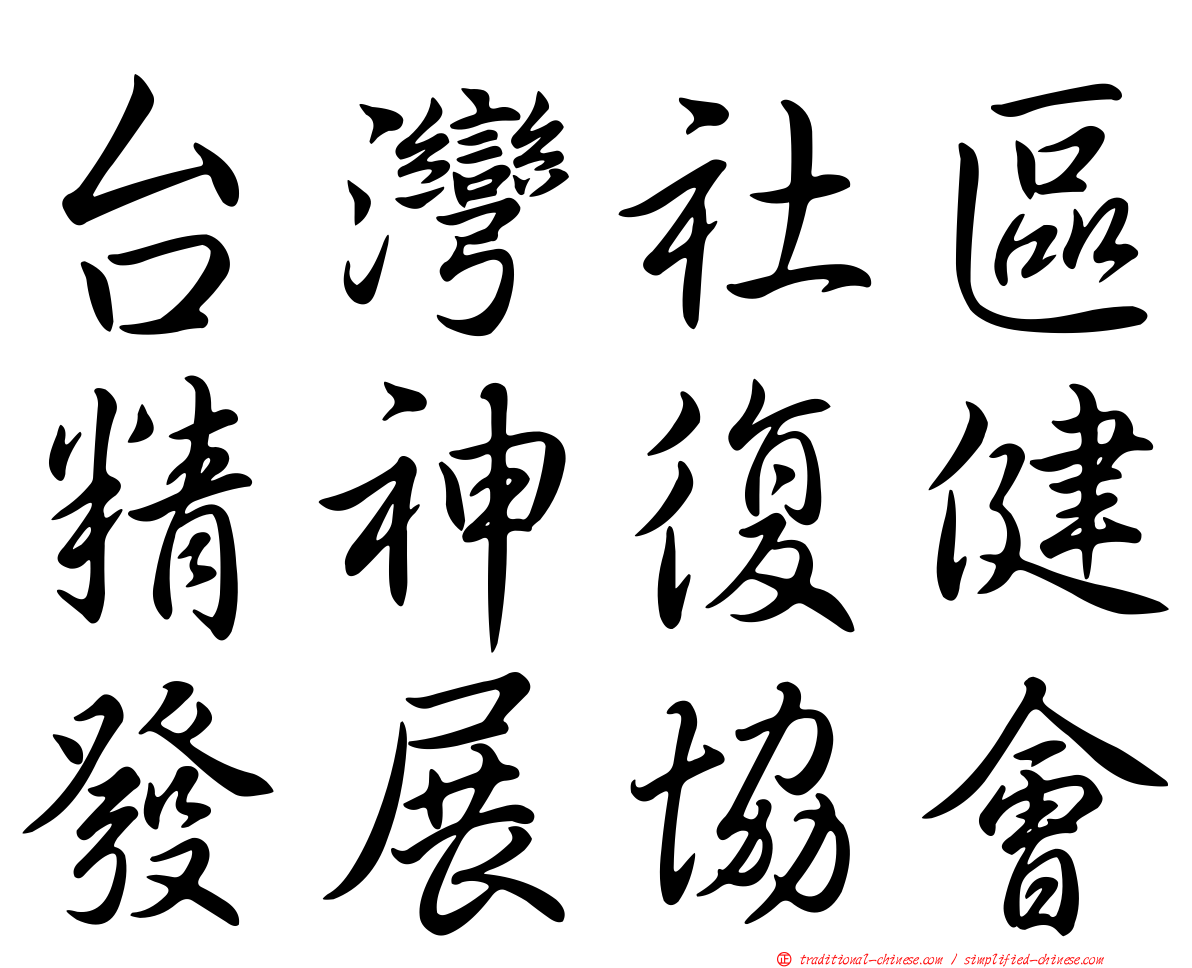 台灣社區
精神復健
發展協會
正 traditional-chinese.com / simplified-chinese.com